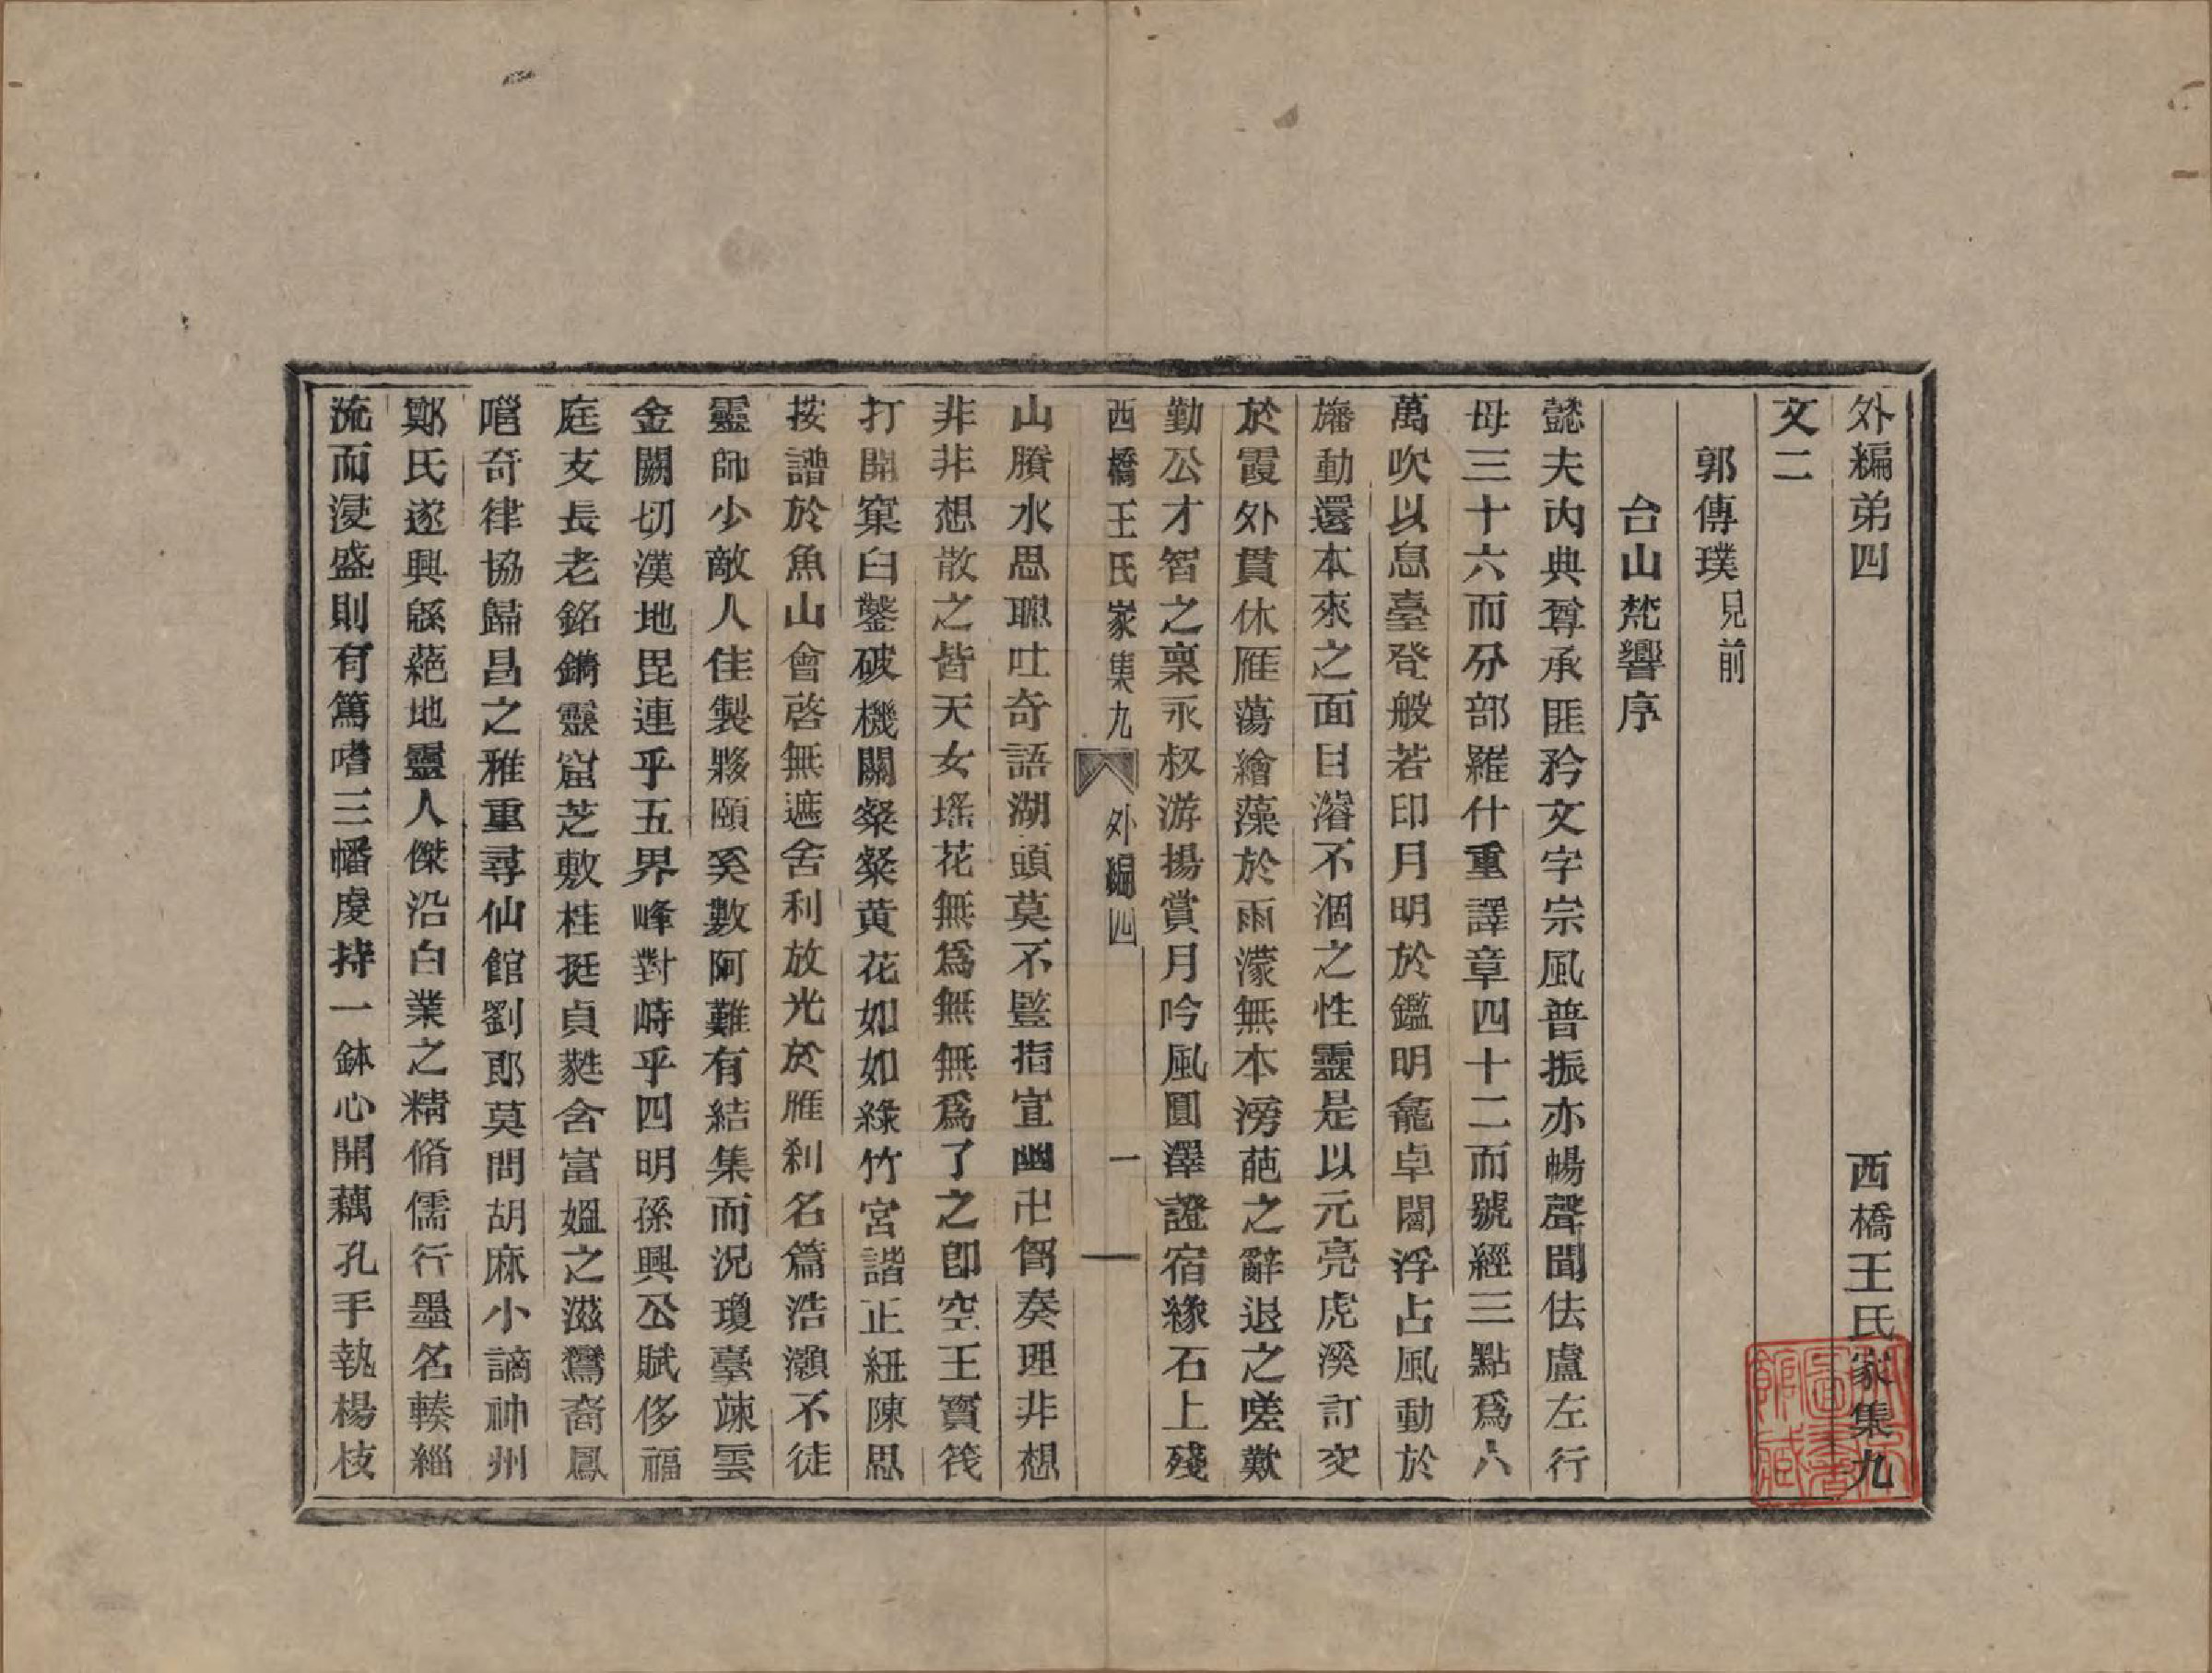 外編弟四　西橋王氏家集九
文二
郭傳璞見前
台山梵響序
懿夫內典尊承匪矜文字宗風普振亦暢聲聞佉盧左行
母三十六而分部羅什重譯章四十二而號經三點爲八
萬吹以息臺登般若印月明於鑑明龕卓閻浮占風動於
旛動還本來之面目濬不涸之性靈是以元亮虎溪訂交
於霞外貫休雁蕩繪藻於雨濛無本滂葩之辭退之嗟歎
勤公才智之稟永叔游揚賞月吟風圓澤證宿緣石上殘
西橋王氏家集九　外編四　一
山賸水思聰吐奇語湖頭莫不豎指宣幽卍胷奏理非想
非非想散之皆天女瑤花無爲無無爲了之卽空王寶筏
打開窠臼鑿破機關粲粲黃花如如綠竹宮諧正紐陳思
按譜於魚山會啓無遮舍利放光於雁剎名篇浩灝不徒
靈師少敵人佳製夥頤奚數阿難有結集而況瓊臺竦雲
金闕切漢地毘連乎五界峰對峙乎四明孫興公賦侈福
庭支長老銘鐫靈窟芝敷桂挺貞蕤含富媼之滋鸞裔鳳
嘒奇律協歸昌之雅重尋仙館劉郎莫問胡麻小謫神州
鄭氏遂興緜蕝地靈人傑沿白業之精脩儒行墨名輳緇
流而浸盛則有篤嗜三幡虔持一鉢心開藕孔手執楊枝